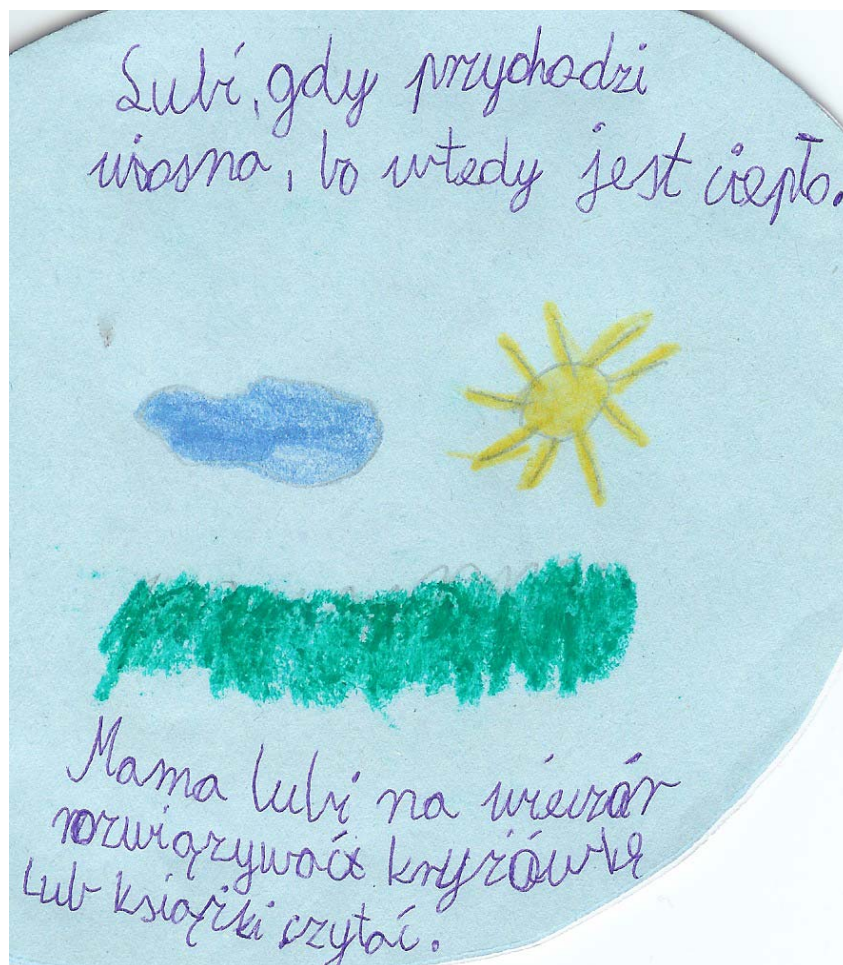 Lubi, gdy przychodzi
wiosna, bo wtedy jest ciepło.
Mama lubi na wieczór
rozwiązywać krzyżówkę
Lub książki czytać.